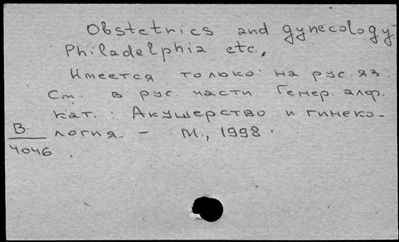 Obstetrics and gynecology.-
Philadelphia etc.,
Имеется только на рус. яз.
См. в рус. части Генер. алф.
кат.: Акушерство и гинеко-
В
логия. - М., 1998.
4046